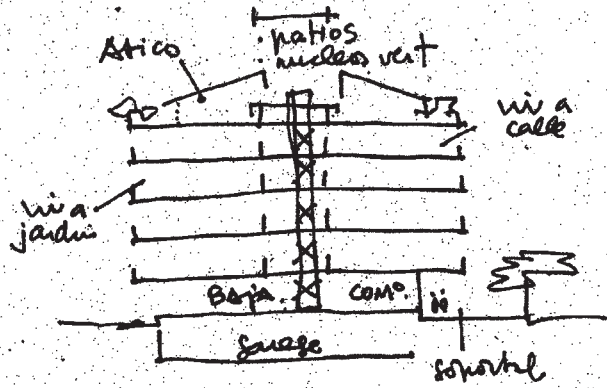 Atico
patios
nucleos vert
viv a
calle
viv a
jardin
Baja.
com°.
garage
soportal